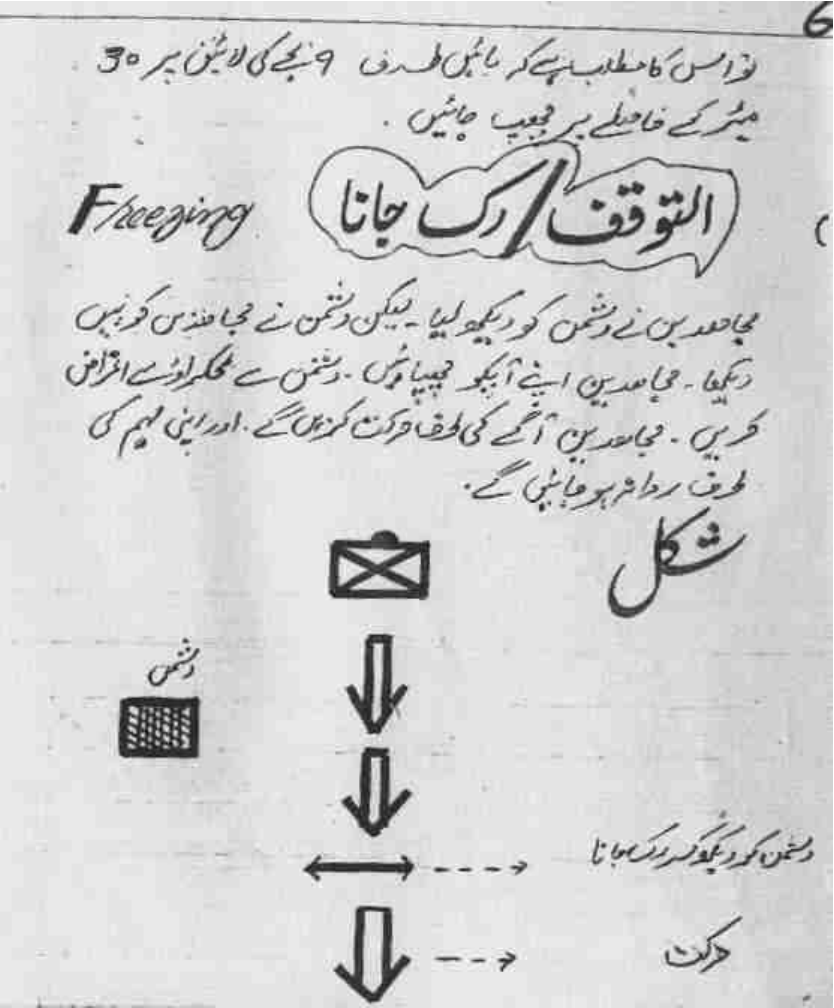 6
تو اس کا مطلب ہے کہ بائیں طرف 9 بجے کی لائین پر 30
میٹر کے فاصلے پر چھپ جائیں ۔
التوقف/رک جانا Freezing
مجاھدین نے دشمن کو دیکھ لیا ۔ لیکن دشمن نے مجاھدین کو نہیں
دیکھا ۔ مجاھدین اپنے آپکو چھپائیں ۔ دشمن سے ٹکراؤ سے اعراض
کریں ۔ مجاھدین آگے کی طرف حرکت کریں گے ۔ اور اپنی مہم کی
طرف روانہ ہو جائیں گے ۔
شکل
دشمن
دشمن کو دیکھ کر رک جانا
حرکت